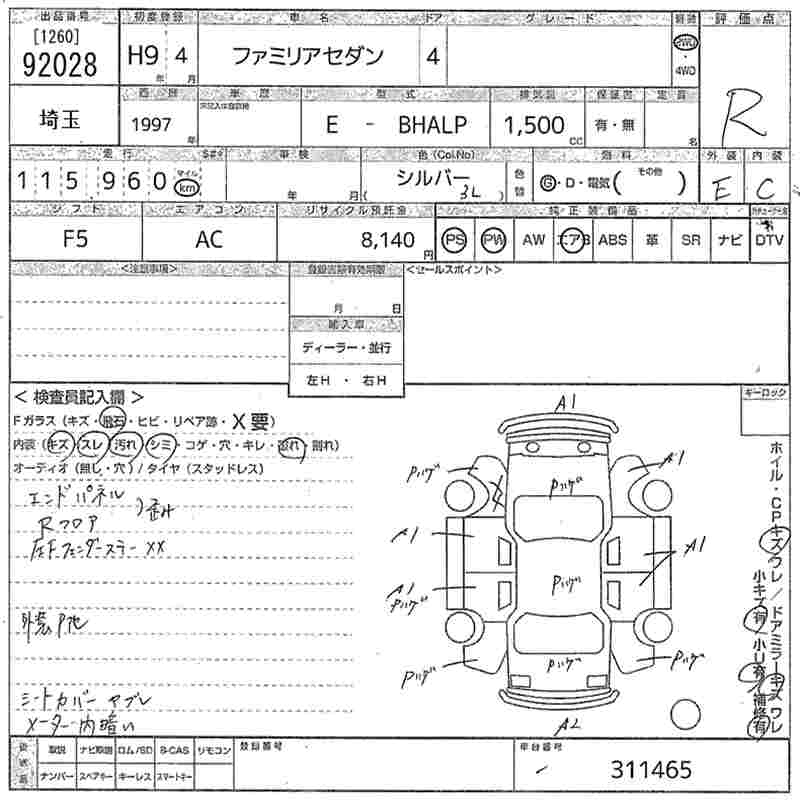 出品番号 初度登録 車名 ドア グレード 評価点
[1260]
92028 H9年 4月 ファミリアセダン 4 2WD・4WD R
埼玉 西暦 車歴 型式 排気量 保証書 定員
1997年 E - BHALP 1,500CC 有・無 名
走行 車検 色(Col.No) 燃料 外装 内装
115960 マイル km 年 月 シルバー ( 3L ) 色替 G・D・電気( その他 ) E C
シフト エアコン リサイクル預託金 純正装備品
F5 AC 8,140円 PS PW AW エアB ABS 革 SR ナビ DTV
<注意事項> 登録書類有効期限 <セールスポイント>
月 日
輸入車
ディーラー・並行
左H ・ 右H
キーロック
< 検査員記入欄 >
Fガラス (キズ・飛石・ヒビ・リペア跡・X要)
内装 (キズ・スレ・汚れ・シミ・コゲ・穴・キレ・割れ)
オーディオ (無し・穴) / タイヤ (スタッドレス)
エンドパネル
Rフロア
歪み
左Fフェンダーステー XX
外装P他
シートカバー ヤブレ
メーター内暗い
A1
Pハゲ Pハゲ A1
A1 A1
A1 Pハゲ Pハゲ
Pハゲ Pハゲ Pハゲ
A2
ホイル・CPキズワレ/ドアミラーキズワレ
小キズ有/小U有/補修有
後送品 取説 ナビ取説 ロム/SD B-CAS リモコン 登録番号 車台番号
ナンバー スペアキー キーレス スマートキー 311465